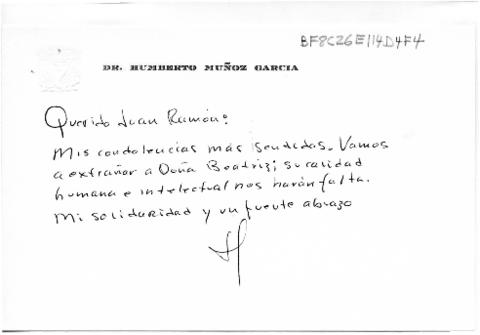 BF8C26E114D4F4
DR. HUMBERTO MUÑOZ GARCIA
Querido Juan Ramón:
Mis condolencias más sentidas. Vamos
a extrañar a Doña Beatriz; su calidad
humana e intelectual nos harán falta.
Mi solidaridad y un fuerte abrazo